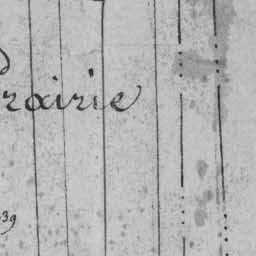 rairie
39